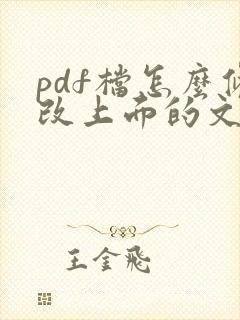 pdf檔怎麼修
改上面的文
王金飛